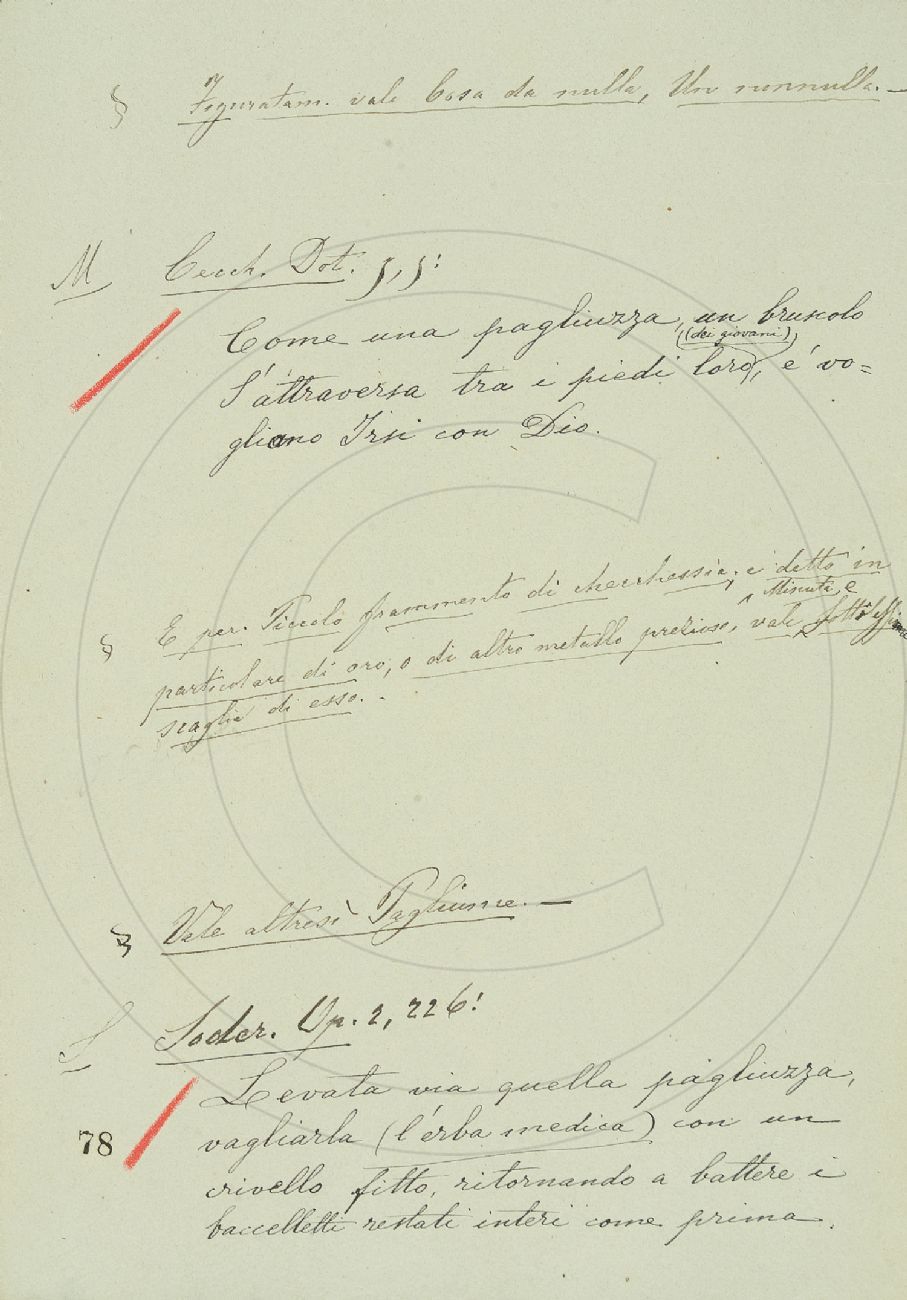 § Figuratam. vale Cosa da nulla, Un nonnulla. —
M Cecch. Dot. 5, 5:
Come una pagliuzza, un bruscolo
(dei giovani)
S'attraversa tra i piedi loro, e' vo=
gliono Irsi con Dio.
§ E per Piccolo frammento di checchessia; e detto in
Minute, e
particolare di oro, o di altro metallo prezioso, vale sottilissime
scaglie di esso. -
§ Vale altresì Pagliume. —
S Soder. Op. 2, 226:
Levata via quella pagliuzza,
vagliarla (l'erba medica) con un
78
crivello fitto, ritornando a battere i
baccelletti restati interi come prima.